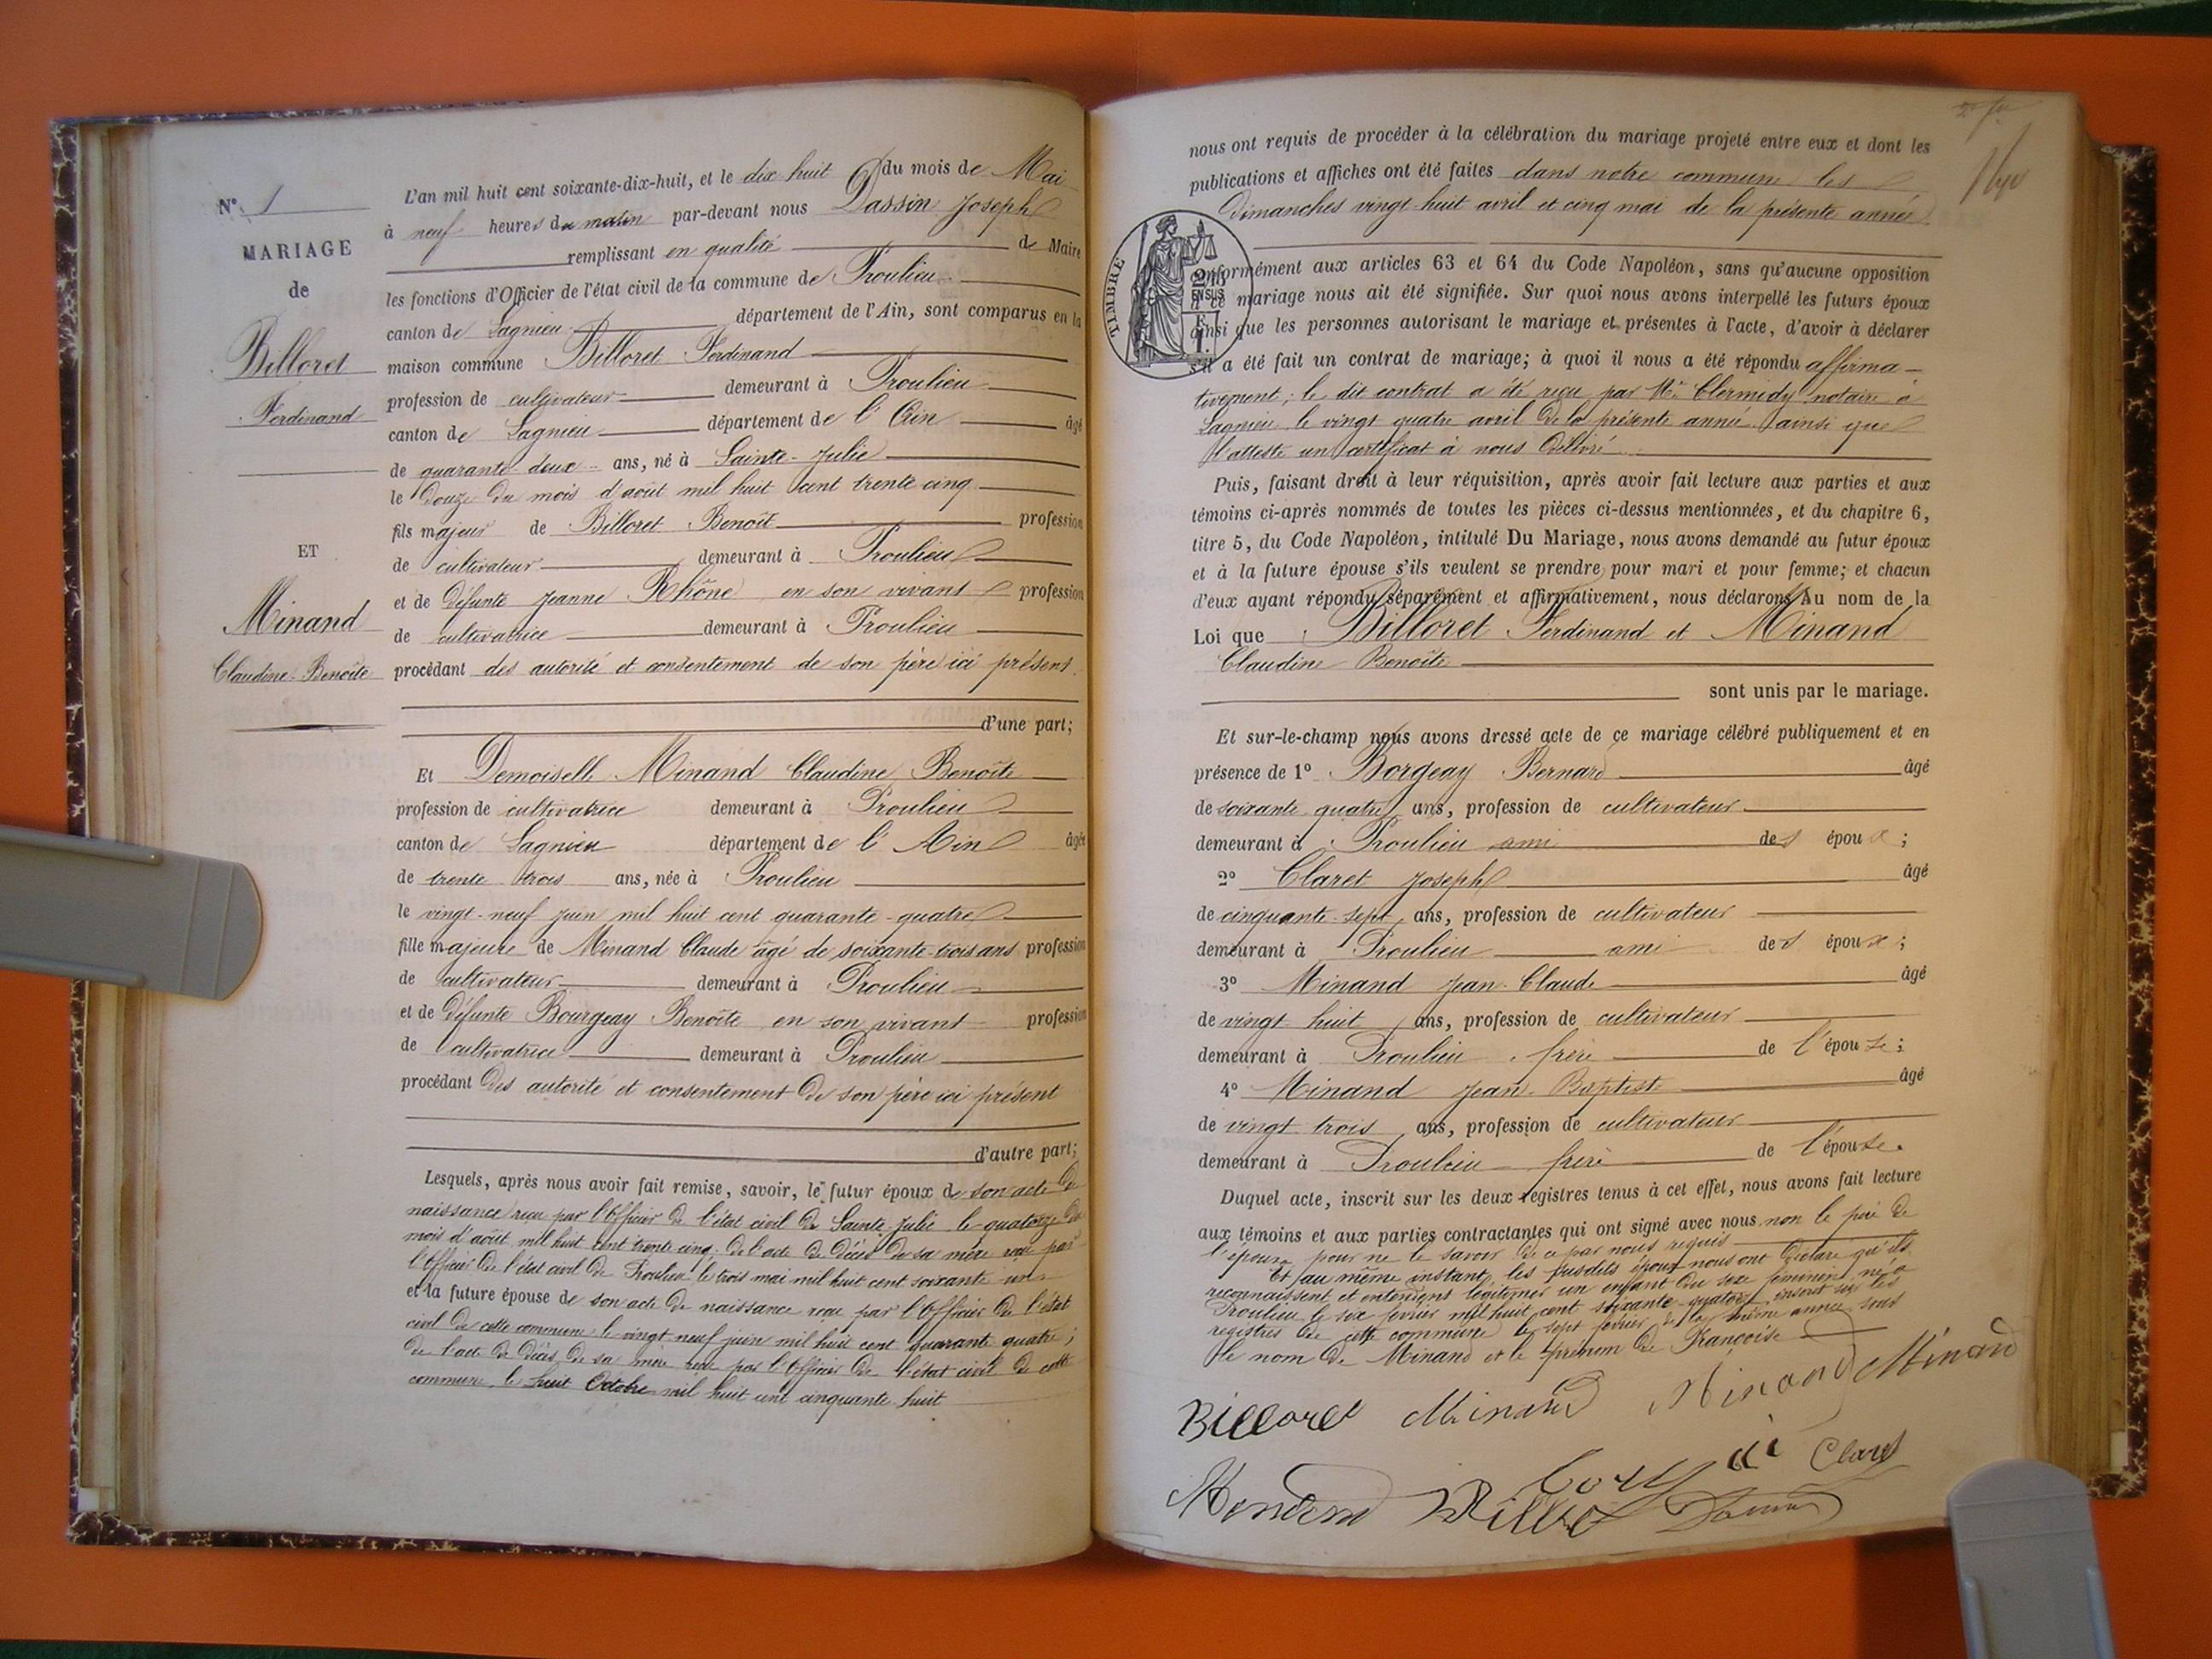 N° 1
MARIAGE
de
Billoret
Ferdinand
ET
Minand
Claudine Benoîte
L'an mil huit cent soixante-dix-huit, et le dix huit du mois de Mai
à neuf heures du matin par-devant nous Dassin Joseph
remplissant en qualité de Maire
les fonctions d'Officier de l'état civil de la commune de Proulieu
canton de Lagnieu département de l'Ain, sont comparus en la
maison commune Billoret Ferdinand
profession de cultivateur demeurant à Proulieu
canton de Lagnieu département de l'Ain âgé
de quarante deux ans, né à Sainte-Julie
le Douze du mois d'août mil huit cent trente cinq
fils majeur de Billoret Benoît profession
de cultivateur demeurant à Proulieu
et de défunte Jeanne Rhône en son vivant profession
de cultivatrice demeurant à Proulieu
procédant des autorité et consentement de son père ici présent
d'une part;
Et Demoiselle Minand Claudine Benoîte
profession de cultivatrice demeurant à Proulieu
canton de Lagnieu département de l'Ain âgée
de trente trois ans, née à Proulieu
le vingt-neuf juin mil huit cent quarante-quatre
fille majeure de Minand Claude âgé de soixante-trois ans profession
de cultivateur demeurant à Proulieu
et de défunte Bourgeay Benoîte en son vivant profession
de cultivatrice demeurant à Proulieu
procédant des autorité et consentement de son père ici présent
d'autre part;
Lesquels, après nous avoir fait remise, savoir, le futur époux de son acte de
naissance reçu par l'Officier de l'état civil de Sainte Julie le quatorze du
mois d'août mil huit cent trente cinq; de l'acte de décès de sa mère reçu par
l'Officier de l'état civil de Proulieu le trois mai mil huit cent soixante un
et la future épouse de son acte de naissance reçu par l'Officier de l'état
civil de cette commune le vingt neuf juin mil huit cent quarante quatre;
de l'acte de décès de sa mère reçu par l'Officier de l'état civil de cette
commune le huit Octobre mil huit cent cinquante huit
nous ont requis de procéder à la célébration du mariage projeté entre eux et dont les
publications et affiches ont été faites dans notre commune les
dimanches vingt-huit avril et cinq mai de la présente année
TIMBRE
conformément aux articles 63 et 64 du Code Napoléon, sans qu'aucune opposition
à ce mariage nous ait été signifiée. Sur quoi nous avons interpellé les futurs époux
ainsi que les personnes autorisant le mariage et présentes à l'acte, d'avoir à déclarer
s'il a été fait un contrat de mariage; à quoi il nous a été répondu affirma-
tivement; le dit contrat a été reçu par Me Clermidy notaire à
Lagnieu le vingt quatre avril de la présente année ainsi que
l'atteste un certificat à nous délivré
Puis, faisant droit à leur réquisition, après avoir fait lecture aux parties et aux
témoins ci-après nommés de toutes les pièces ci-dessus mentionnées, et du chapitre 6,
titre 5, du Code Napoléon, intitulé Du Mariage, nous avons demandé au futur époux
et à la future épouse s'ils veulent se prendre pour mari et pour femme; et chacun
d'eux ayant répondu séparément et affirmativement, nous déclarons Au nom de la
Loi que Billoret Ferdinand et Minand
Claudine Benoîte
sont unis par le mariage.
Et sur-le-champ nous avons dressé acte de ce mariage célébré publiquement et en
présence de 1° Borgeay Bernard âgé
de soixante quatre ans, profession de cultivateur
demeurant à Proulieu ami des époux;
2° Claret Joseph âgé
de cinquante-sept ans, profession de cultivateur
demeurant à Proulieu ami des époux;
3° Minand Jean-Claude âgé
de vingt huit ans, profession de cultivateur
demeurant à Proulieu frère de l'épouse;
4° Minand Jean-Baptiste âgé
de vingt trois ans, profession de cultivateur
demeurant à Proulieu frère de l'épouse.
Duquel acte, inscrit sur les deux registres tenus à cet effet, nous avons fait lecture
aux témoins et aux parties contractantes qui ont signé avec nous non le père de
l'épouse pour ne le savoir de ce par nous requis
Et au même instant les susdits époux nous ont déclaré qu'ils
reconnaissent et entendent légitimer un enfant du sexe féminin né à
Proulieu le six février mil huit cent soixante-quatorze inscrit sur les
registres de cette commune le sept février de la même année sous
le nom de Minand et le prénom de Françoise
Billoret Minand Minand Minand
Claret